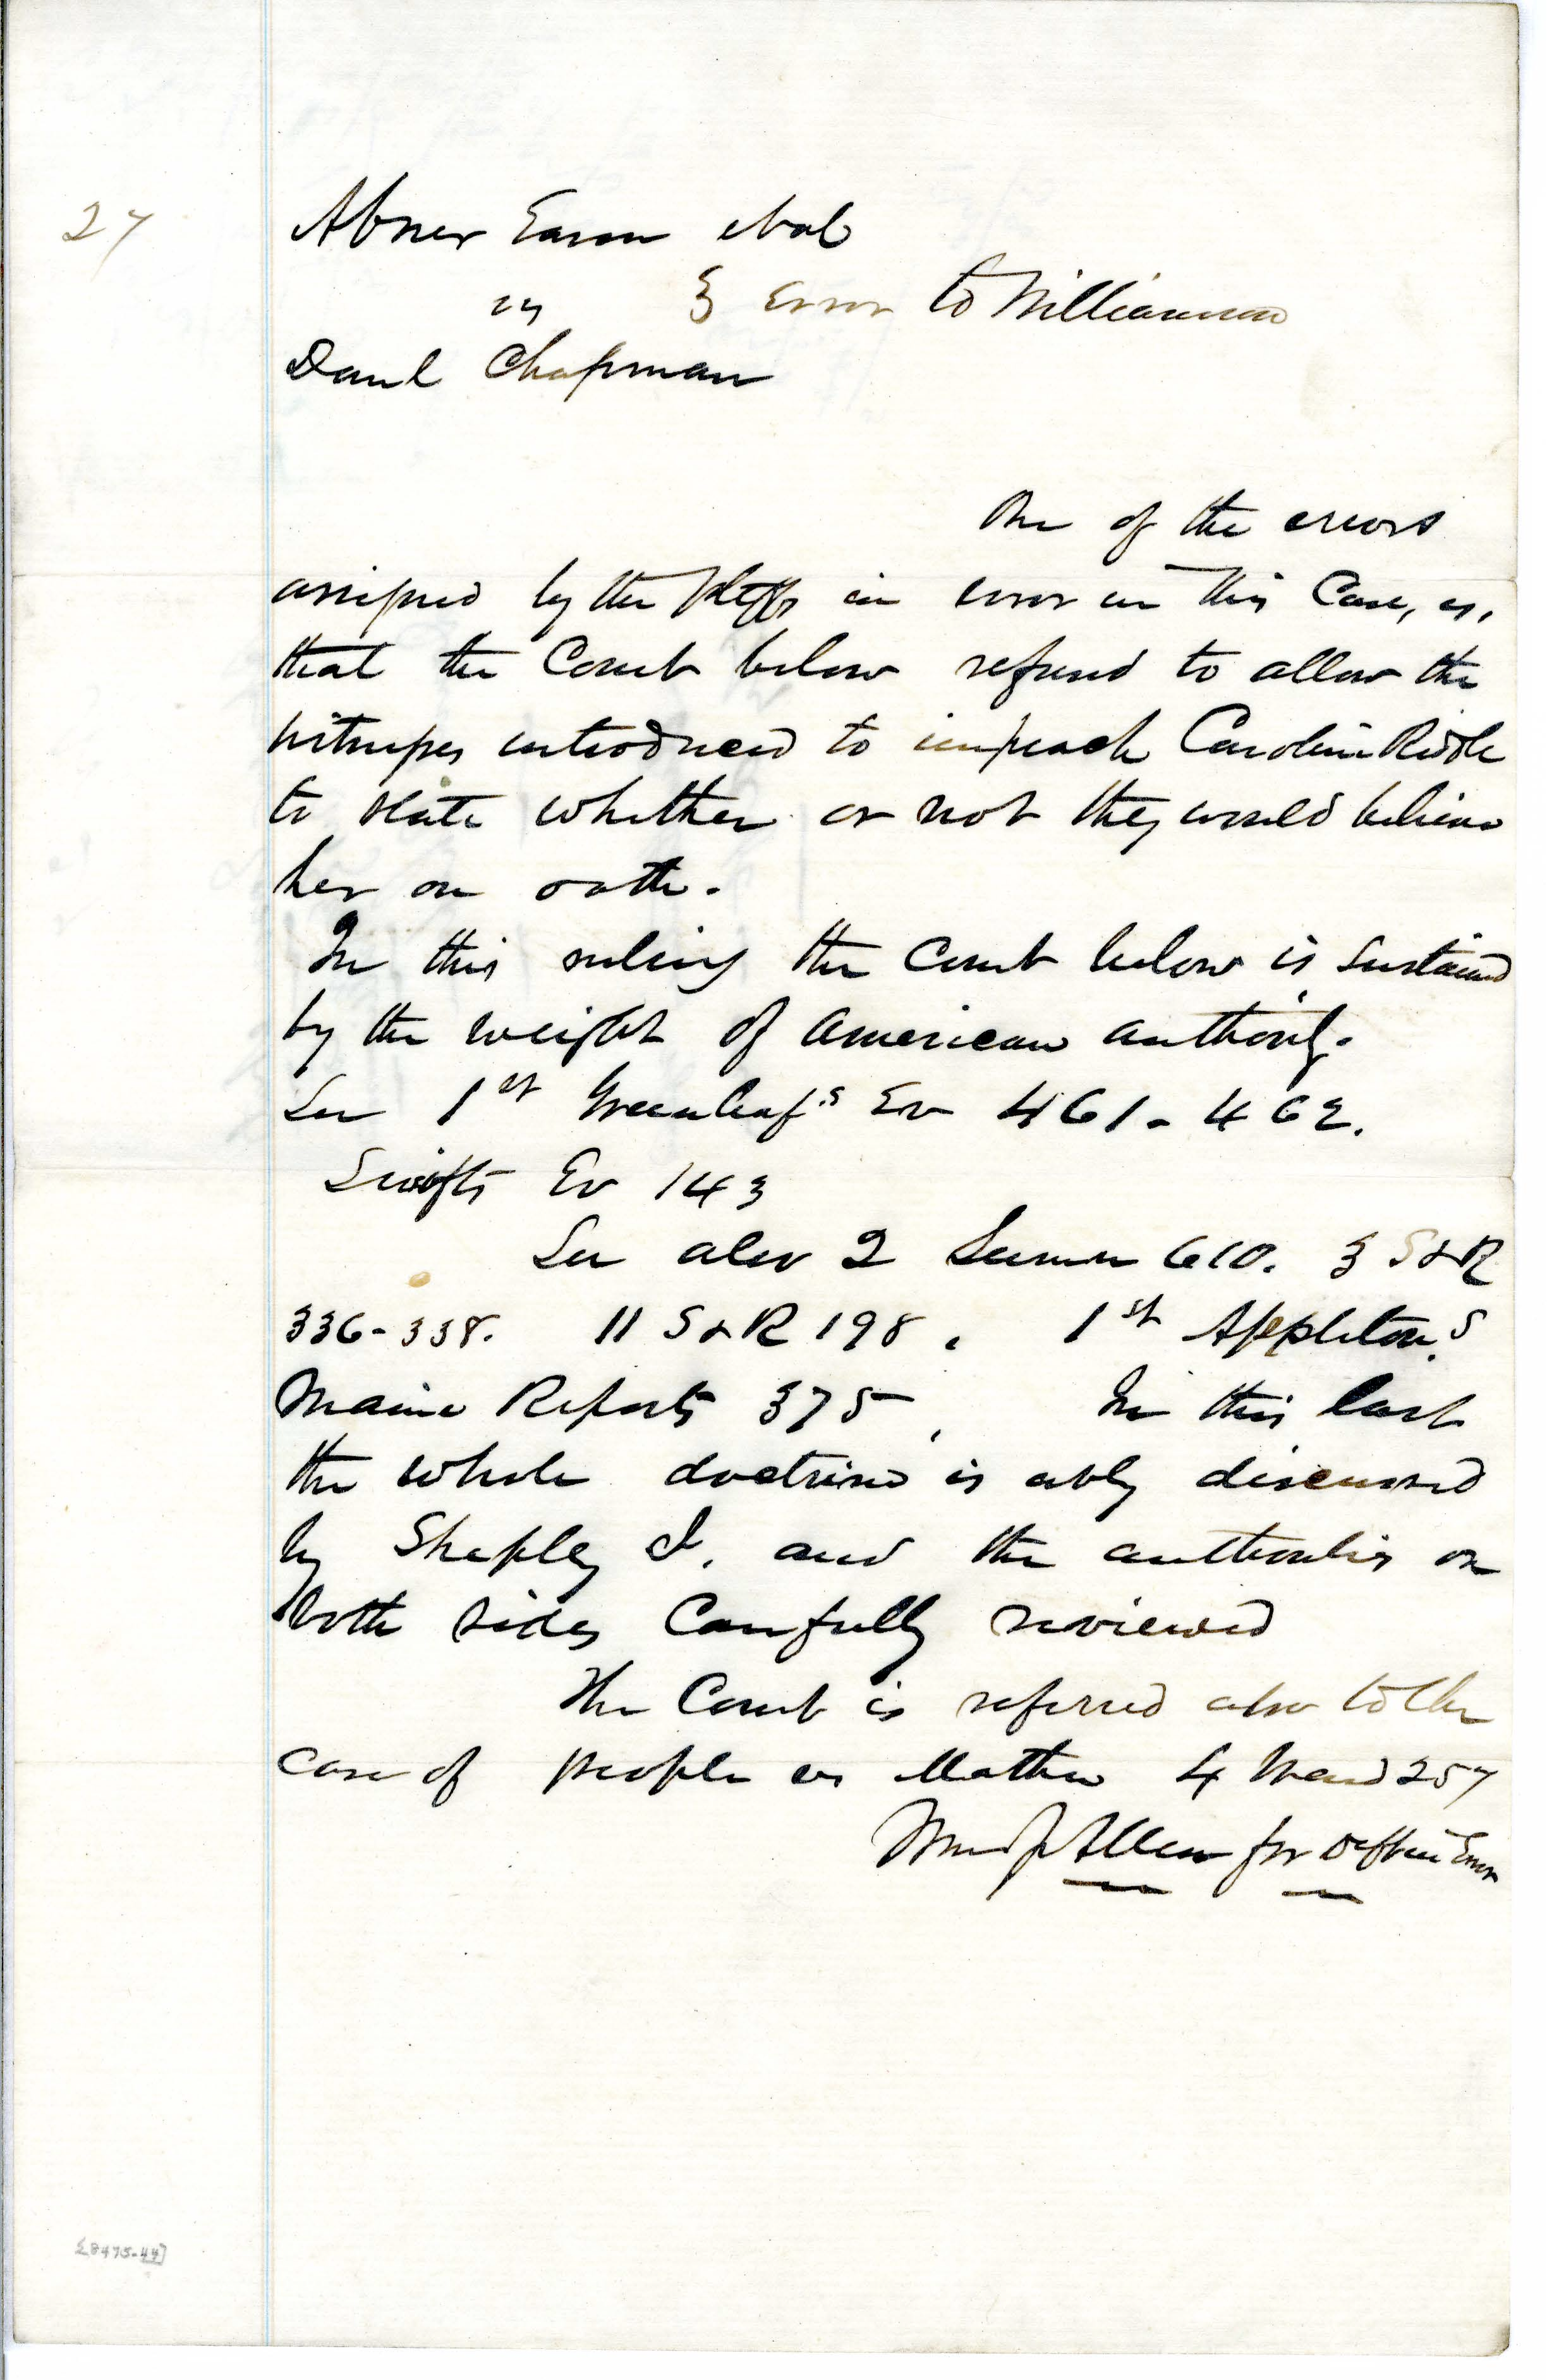 27
Abner Eason etal
vs } Error to Williamson
Danl Chapman
One of the errors
assigned by the Pltffs in error in this Case, is,
that the Court below refused to allow the
witnesses introduced to impeach Caroline Riddle
to state whether or not they would believe
her on oath.
In this ruling the Court below is sustained
by the weight of American authority.
See 1st Greenleaf's Ev 461-462.
Swifts Ev 143
See also 2 Sumn 610. 3 S&R
336-338. 11 S&R 198. 1st Appleton's
Maine Reports 375, In this last
the whole doctrine is ably discussed
by Shepley J. and the authorities on
both sides Carefully reviewed
The Court is referred also to the
case of people vs Mather 4 Wend 257
Wm J Allen for Deft in Error
[8475-44]